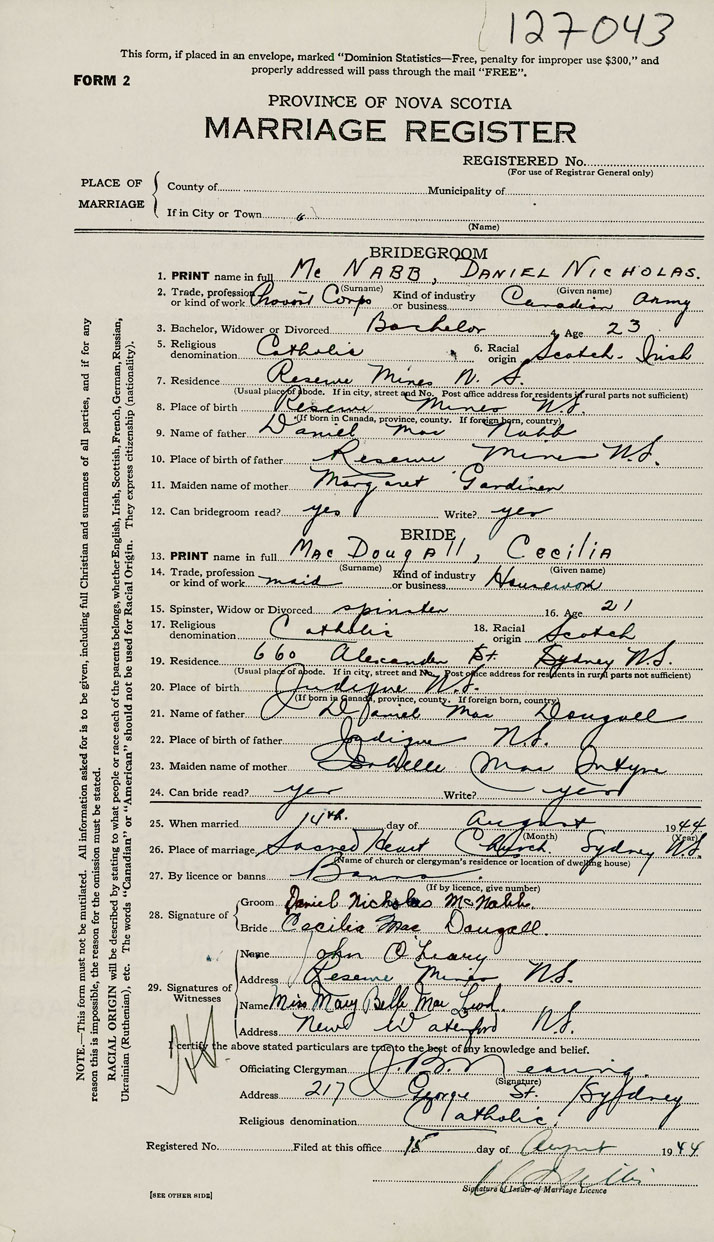 127043
This form, if placed in an envelope, marked “Dominion Statistics—Free, penalty for improper use $300,” and
properly addressed will pass through the mail “FREE”.
FORM 2
PROVINCE OF NOVA SCOTIA
MARRIAGE REGISTER
REGISTERED No.
(For use of Registrar General only)
PLACE OF MARRIAGE
County of Municipality of
If in City or Town
(Name)
BRIDEGROOM
1. PRINT name in full Mc NABB, DANIEL NICHOLAS.
(Surname) (Given name)
2. Trade, profession or kind of work Provost Corps Kind of industry or business Canadian Army
3. Bachelor, Widower or Divorced Bachelor 4. Age 23
5. Religious denomination Catholic 6. Racial origin Scotch-Irish
7. Residence Reserve Mines N. S.
(Usual place of abode. If in city, street and No. Post office address for residents in rural parts not sufficient)
8. Place of birth Reserve Mines N.S.
(If born in Canada, province, county. If foreign born, country)
9. Name of father Daniel Mac Nabb
10. Place of birth of father Reserve Mines N.S.
11. Maiden name of mother Margaret Gardiner
12. Can bridegroom read? yes Write? yes
BRIDE
13. PRINT name in full MacDougall, Cecilia
(Surname) (Given name)
14. Trade, profession or kind of work maid Kind of industry or business Housework
15. Spinster, Widow or Divorced spinster 16. Age 21
17. Religious denomination Catholic 18. Racial origin Scotch
19. Residence 660 Alexander St. Sydney N.S.
(Usual place of abode. If in city, street and No. Post office address for residents in rural parts not sufficient)
20. Place of birth Judique N.S.
(If born in Canada, province, county. If foreign born, country)
21. Name of father Daniel Mac Dougall
22. Place of birth of father Judique N.S.
23. Maiden name of mother Isabelle Mac Intyre
24. Can bride read? yes Write? yes
25. When married 14th. day of August 1944
(Month) (Year)
26. Place of marriage Sacred Heart Church. Sydney N.S.
(Name of church or clergyman's residence or location of dwelling house)
27. By licence or banns Banns.
(If by licence, give number)
28. Signature of
Groom Daniel Nicholas McNabb.
Bride Cecilia Mac Dougall.
29. Signatures of Witnesses
Name John O'Leary
Address Reserve Mines N.S.
Name Miss Mary Belle Mac Leod.
Address New Waterford N.S.
I certify the above stated particulars are true to the best of my knowledge and belief.
Officiating Clergyman
(Signature)
Address 217 George St. Sydney
Religious denomination Catholic.
Registered No. Filed at this office 15 day of August 1944
Signature of Issuer of Marriage Licence
[SEE OTHER SIDE]
NOTE.—This form must not be mutilated. All information asked for is to be given, including full Christian and surnames of all parties, and if for any
reason this is impossible, the reason for the omission must be stated.
RACIAL ORIGIN will be described by stating to what people or race each of the parents belongs, whether English, Irish, Scottish, French, German, Russian,
Ukrainian (Ruthenian), etc. The words “Canadian” or “American” should not be used for Racial Origin. They express citizenship (nationality).